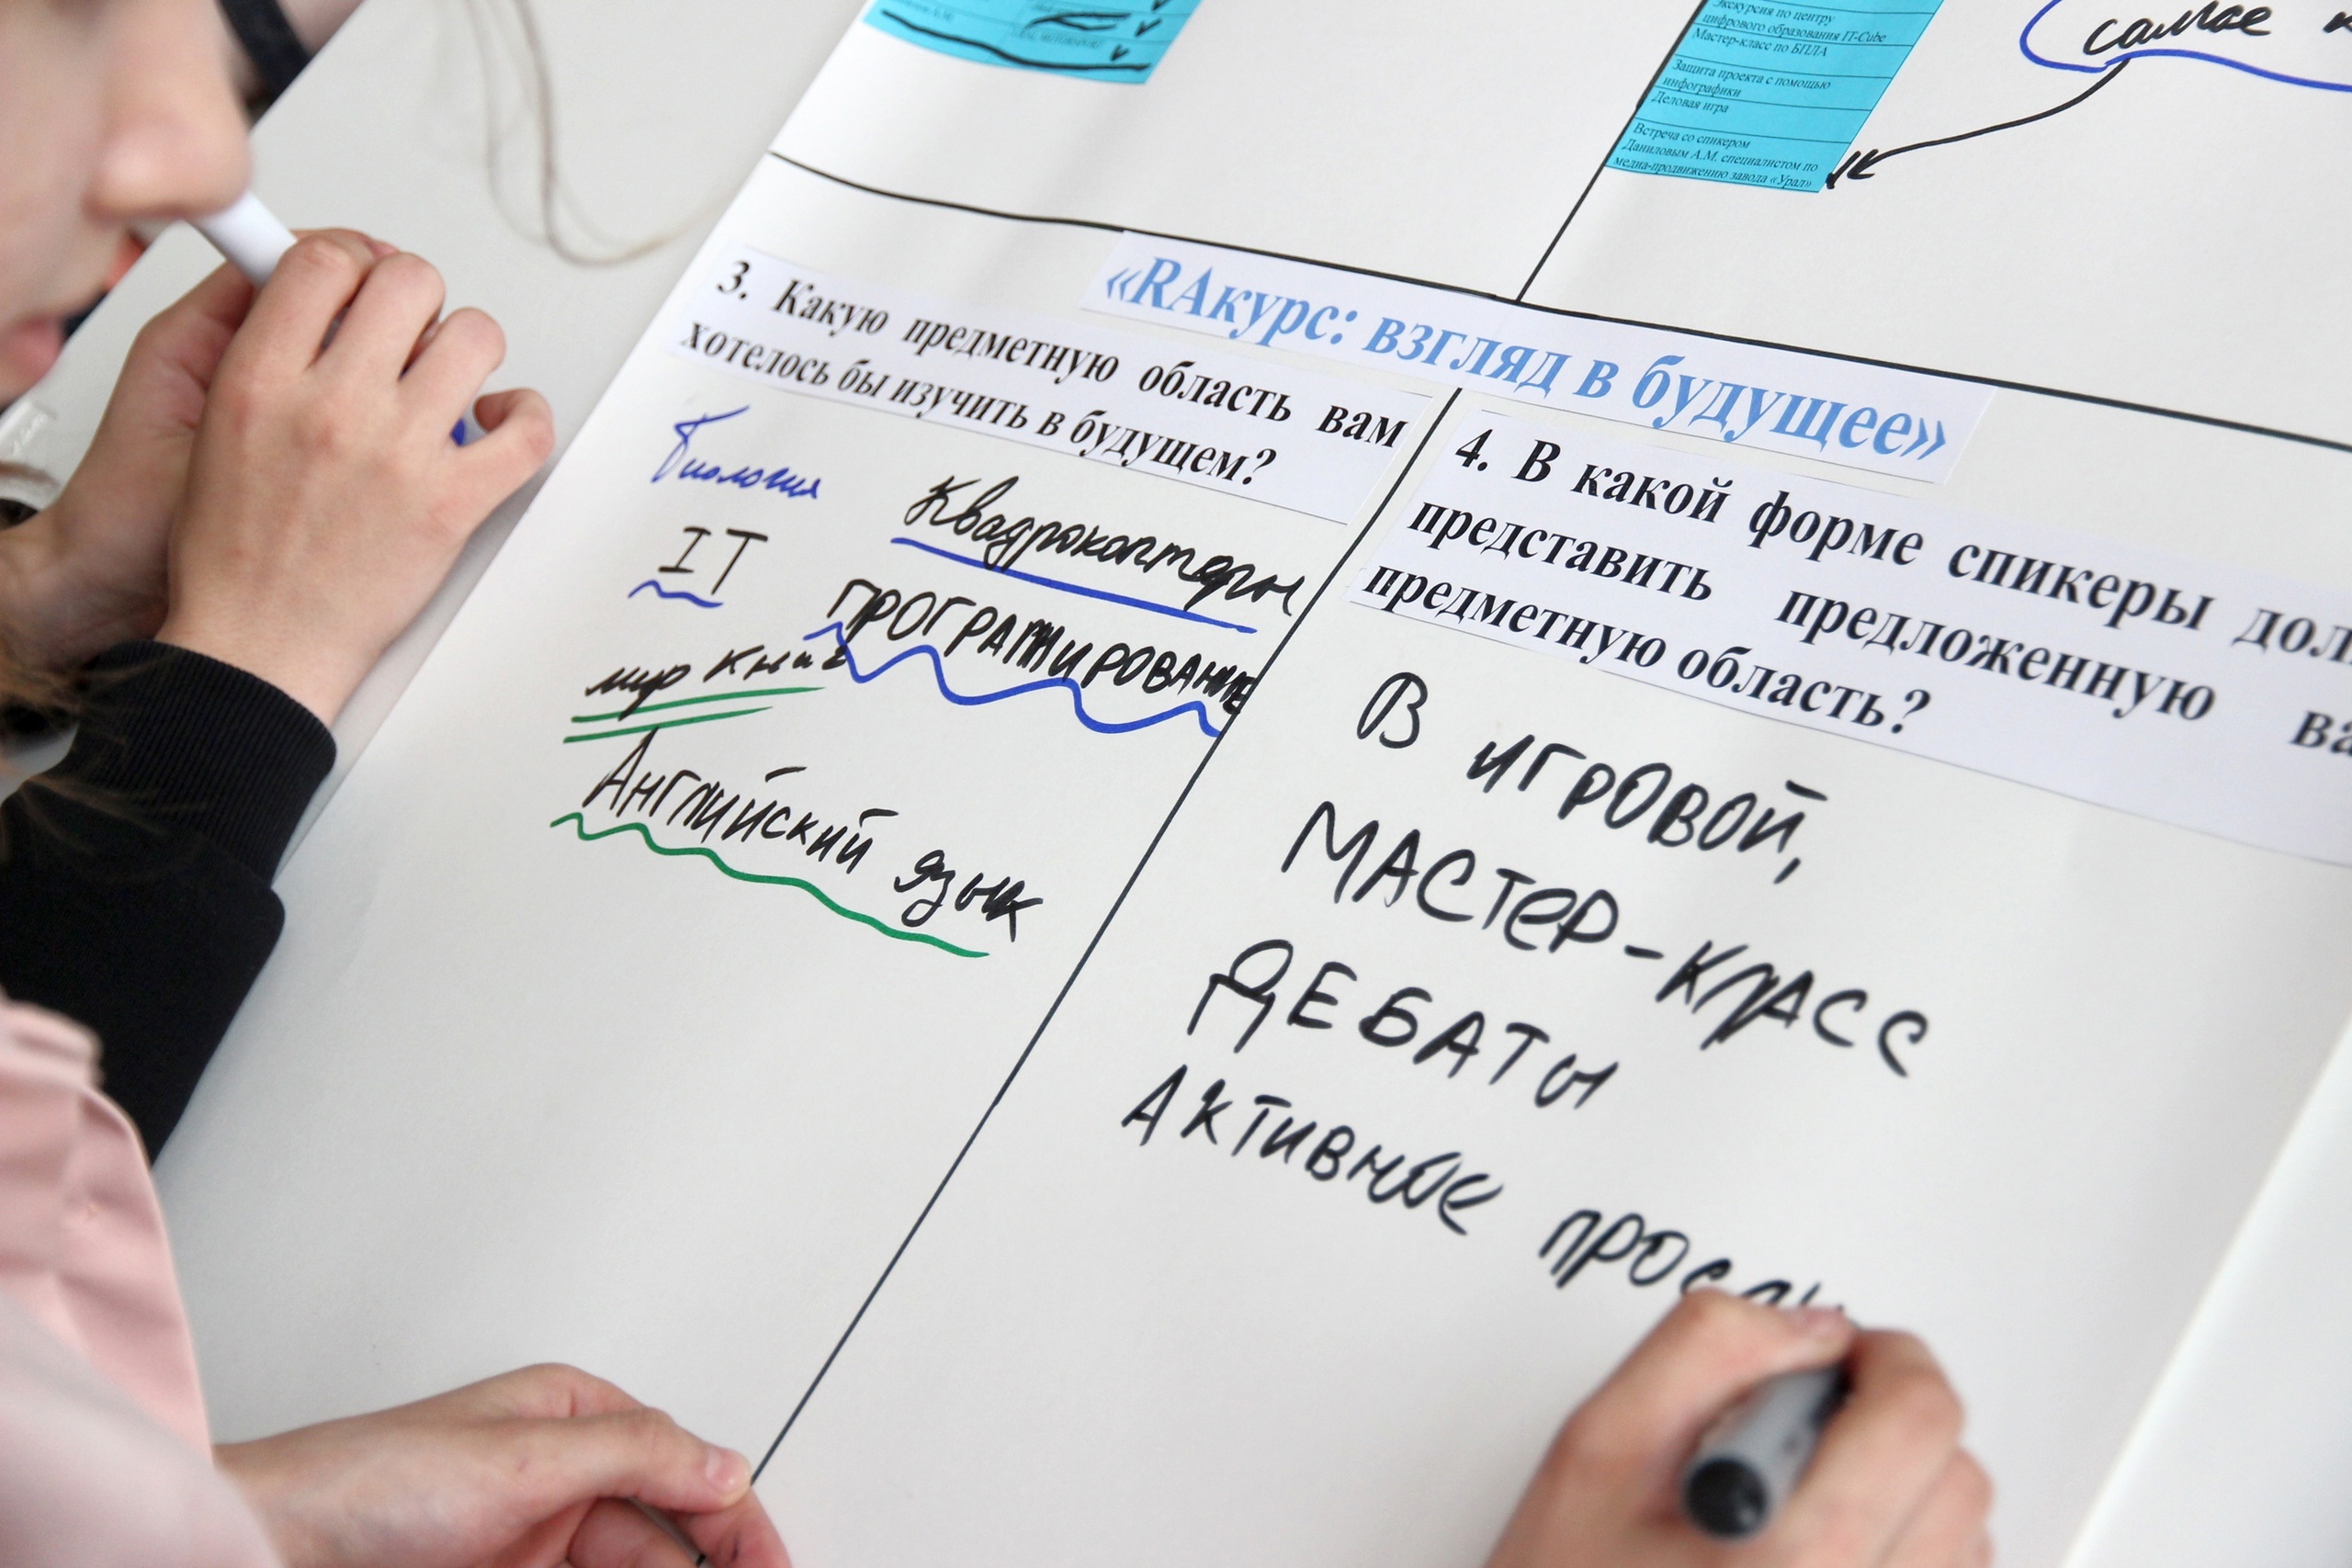 Экскурсия по центру
цифрового образования IT-Cube
Мастер-класс по БПЛА
Защита проекта с помощью
инфографики
Деловая игра
Встреча со спикером
Даниловым А.М. специалистом по
медиа-продвижению завода «Урал»
самое
«RАкурс: взгляд в будущее»
3. Какую предметную область вам
хотелось бы изучить в будущем?
Биология
IT
Квадрокоптеры
ПРОГРАММИРОВАНИЕ
мир книг
Английский язык
4. В какой форме спикеры
представить предложенную
предметную область?
В ИГРОВОЙ,
МАСТЕР-КЛАСС
ДЕБАТЫ
АКТИВНОЕ